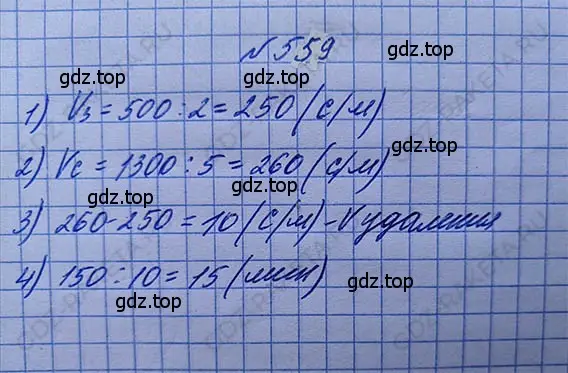 № 559
gdz.top gdz.top
1) Vз = 500 : 2 = 250 (с/м)
gdz.top
2) Vс = 1300 : 5 = 260 (с/м)
gdz.top gdz.top
3) 260 - 250 = 10 (с/м) - V удаления
gdz.top
4) 150 : 10 = 15 (мин)
gdz.top gdz.top